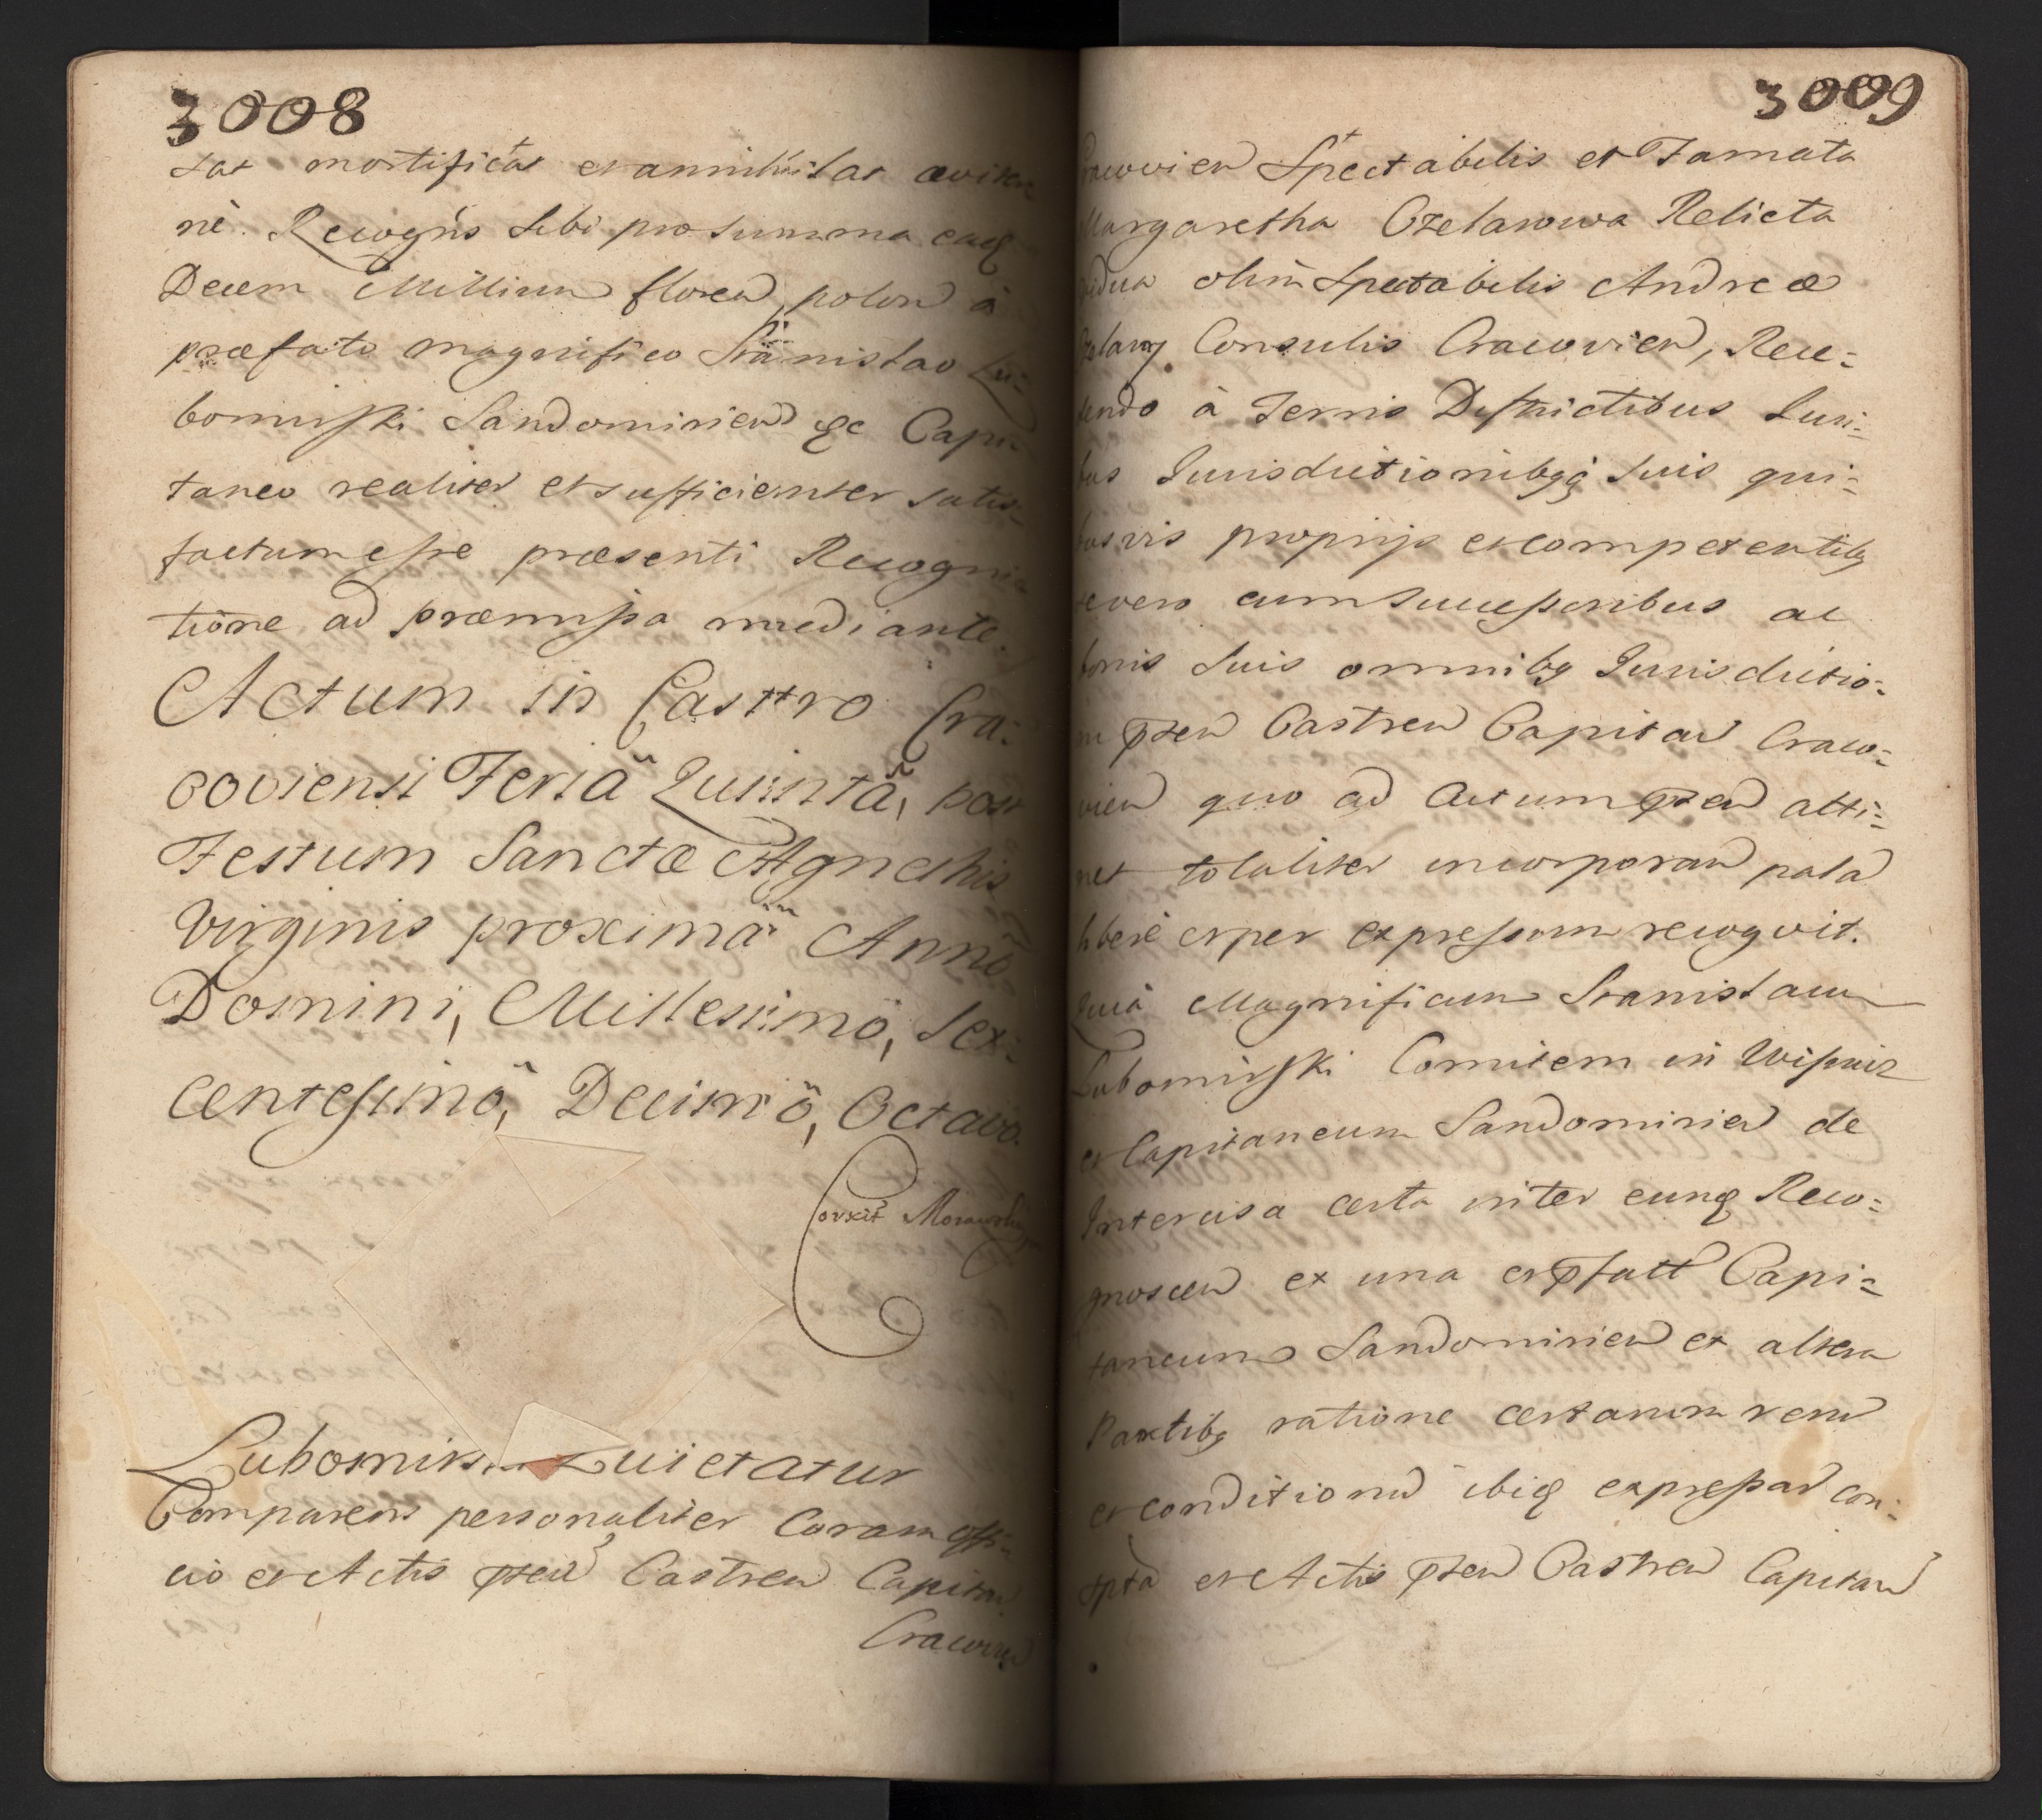 3008
tat mortificat et annihilat aeviter
nè. Recogns Sibi pro summa eadq
Decem Millium floren polon à
præfato magnifico Stanislao Lu-
bomirski Sandomirien &c Capi
taneo realiter et sufficienter satis-
factum esse præsenti Recogni
tione ad præmissa mediante.
Actum in Castro Cra-
coviensi Feriâ Quintâ, post
Festum Sanctæ Agnethis
Virginis proximâ Annô
Domini, Millesimô, Sex-
centesimô, Decimô, Octavo.
Corxit Morawsky
Lubomirs Quietatur
Comparens personaliter Coram offi
cio et Actis pten Castren Capitan
Cracovien
3009
Cracovien Spectabilis et Famata
Margaretha Czelarowa Relicta
vidua olim Spectabilis Andreæ
Czelary Consulis Cracovien, Rece-
dendo à Terris Districtibus Juri-
bus Jurisdictionibqq suis qui-
busvis proprijs et competentibq
se vero cum Successoribus ac
bonis suis omnibq Jurisdictio-
ni pten Castren Capitan Craco-
vien quo ad actum pten atti-
net totaliter incorporan pala
libere et per expressum recogvit.
Quia Magnificum Stanislaum
Lubomirski Comitem in Wisnicz
et Capitaneum Sandomirien de
Intercisa certa inter eunq Reco-
gnoscen ex una et pfatt Capi-
taneum Sandomirien ex altera
Partibq ratione certarum reru
et conditionu ibiq expressar con-
tpta et Actis pten Castren Capitan